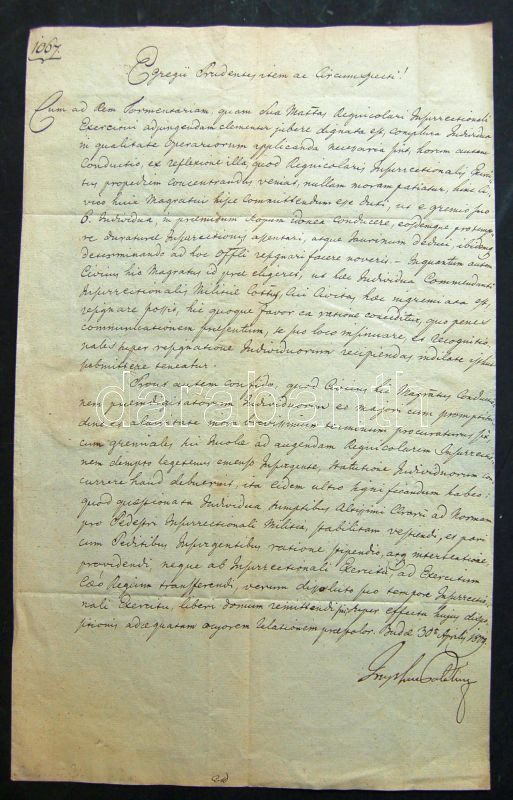 1067.
Egregii Prudentes item ac Circumspecti!
Cum ad Rem Tormentariam, quam Sua Mattas Regnicolari Insurrectionali
Exercitui adjungendam clementer jubere dignata est, complura Individua
in qualitate Operariorum applicanda necessaria sint, horum autem
conductio, ex reflexione illa, quod Regnicolaris Insurrectionalis Exerci-
tus propediem concentrandus veniat, nullam moram patiatur, hinc Ci-
vico huic Magistratui hisce committendum esse duxi, ut e gremio sui
6. Individua, in praemissum scopum idonea conducere, eosdemque pro tempo-
re duraturae Insurrectionis assentari, atque huc dein deduci, ibidem
determinando ad hoc Offli resignari facere noverit. – In quantum autem
Civicus hic Magratus id prae eligeret, ut haec Individua Commendanti
Insurrectionalis Militiae Cottus, cui Civitas haec ingremiata est,
resignare possit, hic quoque favor ea ratione conceditur, quo penes
communicationem praesentium, se pro loco insinuare, et Recognitio-
nales super resignatione Individuorum recipiendas indilate isthuc
submittere teneatur.
Prout autem confido, quod Civicus hic Magratus Conductio-
nem praemissorum Individuorum eo majori cum promptitu-
dine et alacritate
cum gremiales hi Incolae ad augendam Regnicolarem Insurrectio-
nem dempto Insurgente, statutione Individuorum con-
currere haud debuerint, ita eidem ultro significandum habeo:
quod quaestionata Individua sumptibus Aerarii Civici ad Normam
pro Pedestri Insurrectionali Militia, stabilitam vestiendi, et pari
cum Peditibus Insurgentibus ratione stipendio, atque intertentione,
providendi, neque ab Insurrectionali Exercitu, ad Exercitum
Caeo Regium transferendi, verum dissoluto suo tempore Insurrectio-
nali Exercitu, liberi domum remittendi sint; super effectu hujus dispo-
sitionis adaequatam relationem praestolor. Budae 30a Aprilis 1809.
Josephus Palatinus
darabanth
ad